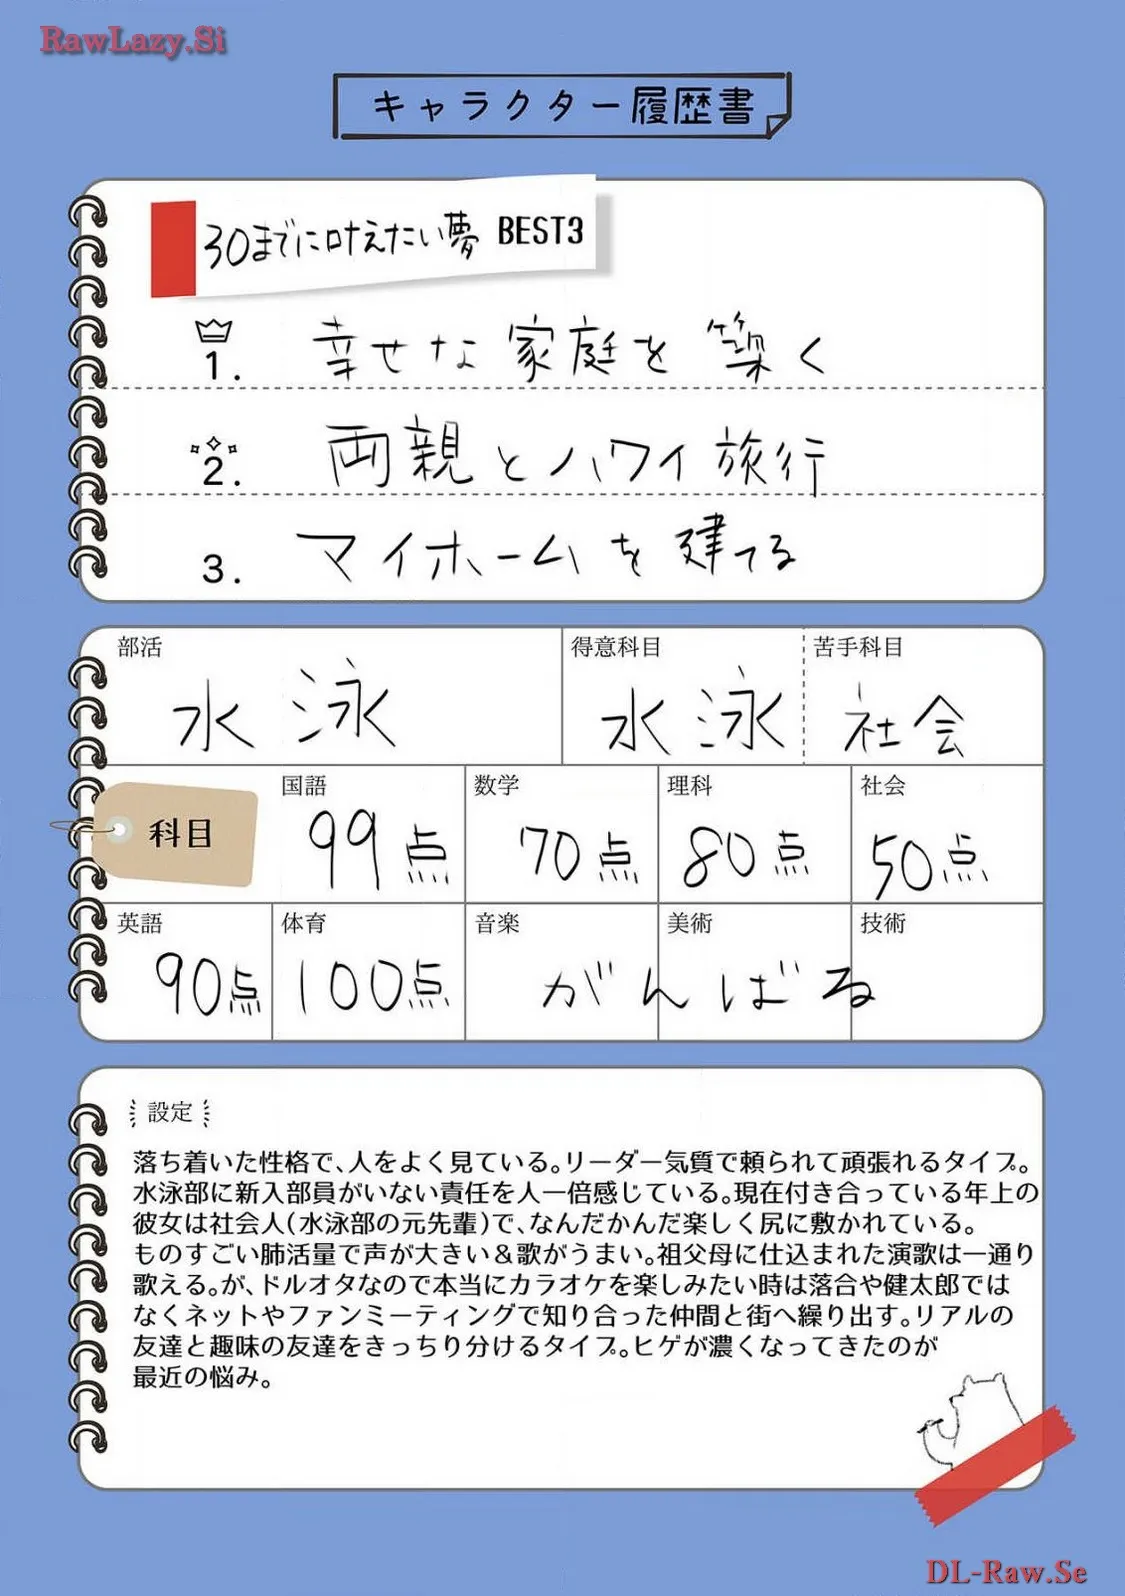 RawLazy.Si
キャラクター履歴書
30までに叶えたい夢 BEST3
1. 幸せな家庭を築く
2. 両親とハワイ旅行
3. マイホームを建てる
部活 得意科目 苦手科目
水泳 水泳 社会
科目
国語 数学 理科 社会
99点 70点 80点 50点
英語 体育 音楽 美術 技術
90点 100点 がんばる
設定
落ち着いた性格で、人をよく見ている。リーダー気質で頼られて頑張れるタイプ。
水泳部に新入部員がいない責任を人一倍感じている。現在付き合っている年上の
彼女は社会人(水泳部の元先輩)で、なんだかんだ楽しく尻に敷かれている。
ものすごい肺活量で声が大きい&歌がうまい。祖父母に仕込まれた演歌は一通り
歌える。が、ドルオタなので本当にカラオケを楽しみたい時は落合や健太郎では
なくネットやファンミーティングで知り合った仲間と街へ繰り出す。リアルの
友達と趣味の友達をきっちり分けるタイプ。ヒゲが濃くなってきたのが
最近の悩み。
DL-Raw.Se